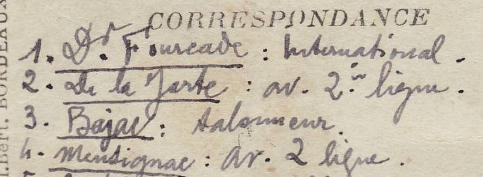 CORRESPONDANCE
1. Dr. Fourcade : International.
2. De la Jarte : av. 2ème ligne.
3. Bajac : talonneur.
4. Mentignac : av. 2 ligne.
BORDEAUX